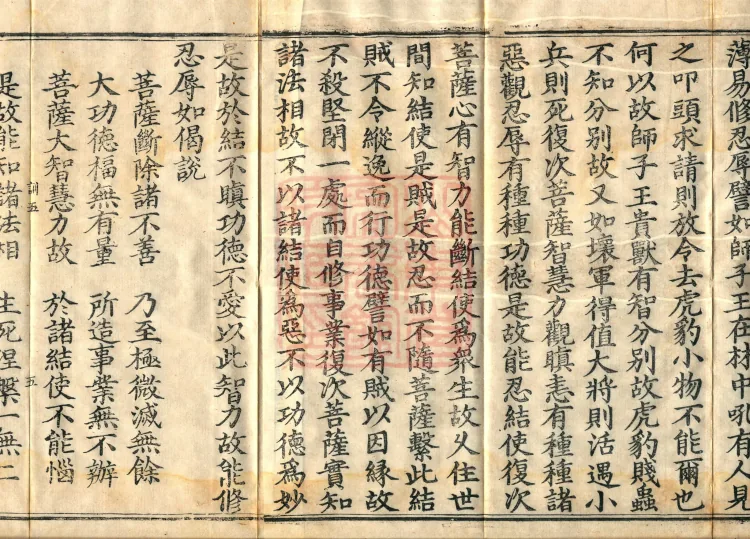 薄易修忍辱譬如師子王在林中吼有人見
之叩頭求請則放令去虎豹小物不能爾也
何以故師子王貴獸有智分別故虎豹賤蟲
不知分別故又如壞軍得值大將則活遇小
兵則死復次菩薩智慧力觀瞋恚有種種諸
惡觀忍辱有種種功德是故能忍結使復次
菩薩心有智力能斷結使爲衆生故久住世
間知結使是賊是故忍而不隨菩薩繫此結
賊不令縱逸而行功德譬如有賊以因緣故
不殺堅閉一處而自修事業復次菩薩實知
諸法相故不以諸結使爲惡不以功德爲妙
是故於結不瞋功德不愛以此智力故能修
忍辱如偈說
菩薩斷除諸不善　乃至極微滅無餘
大功德福無有量　所造事業無不辦
菩薩大智慧力故　於諸結使不能惱
訓五　五
是故能知諸法相　生死涅槃一無二